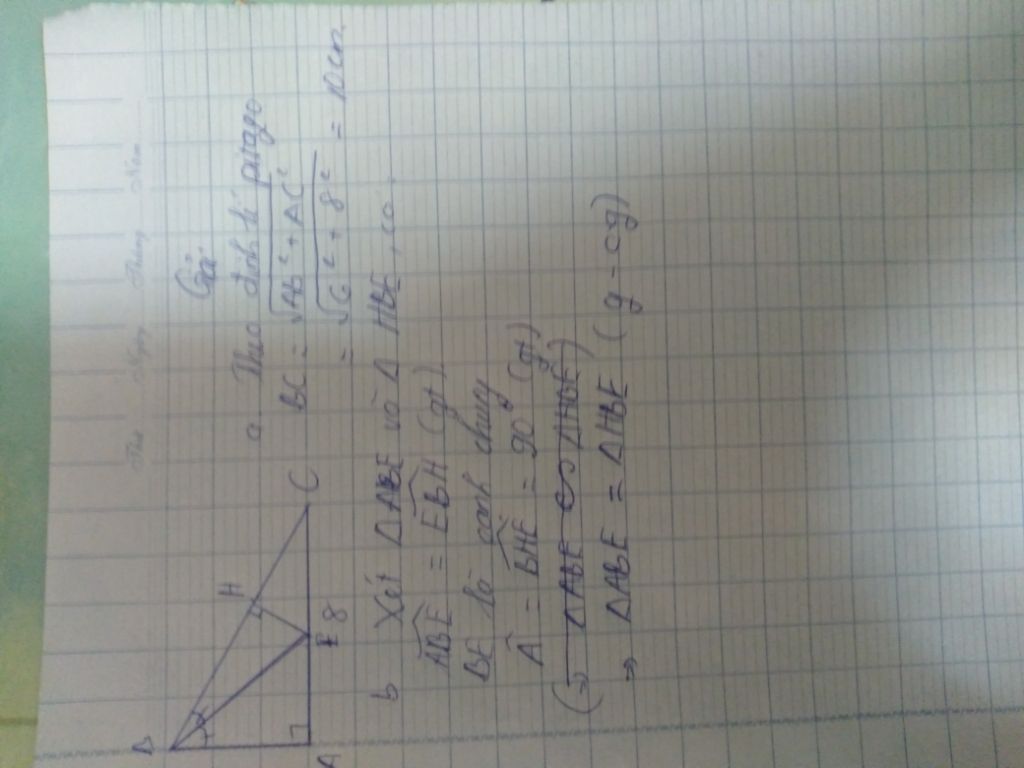 Thứ Ngày Tháng Năm
Giải
B
H
A
E
8
C
a Theo định lí pitago
BC = √AB² + AC²
= √6² + 8² = 10cm
b Xét ΔABE và Δ HBE, có
ABE = EBH (gt)
BE là cạnh chung
A = BHE = 90 (gt)
(⇒ ΔABE ∽ ΔHBE)
⇒ ΔABE = ΔHBE (g-cg)